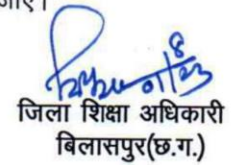 जाए।
जिला शिक्षा अधिकारी
बिलासपुर(छ.ग.)